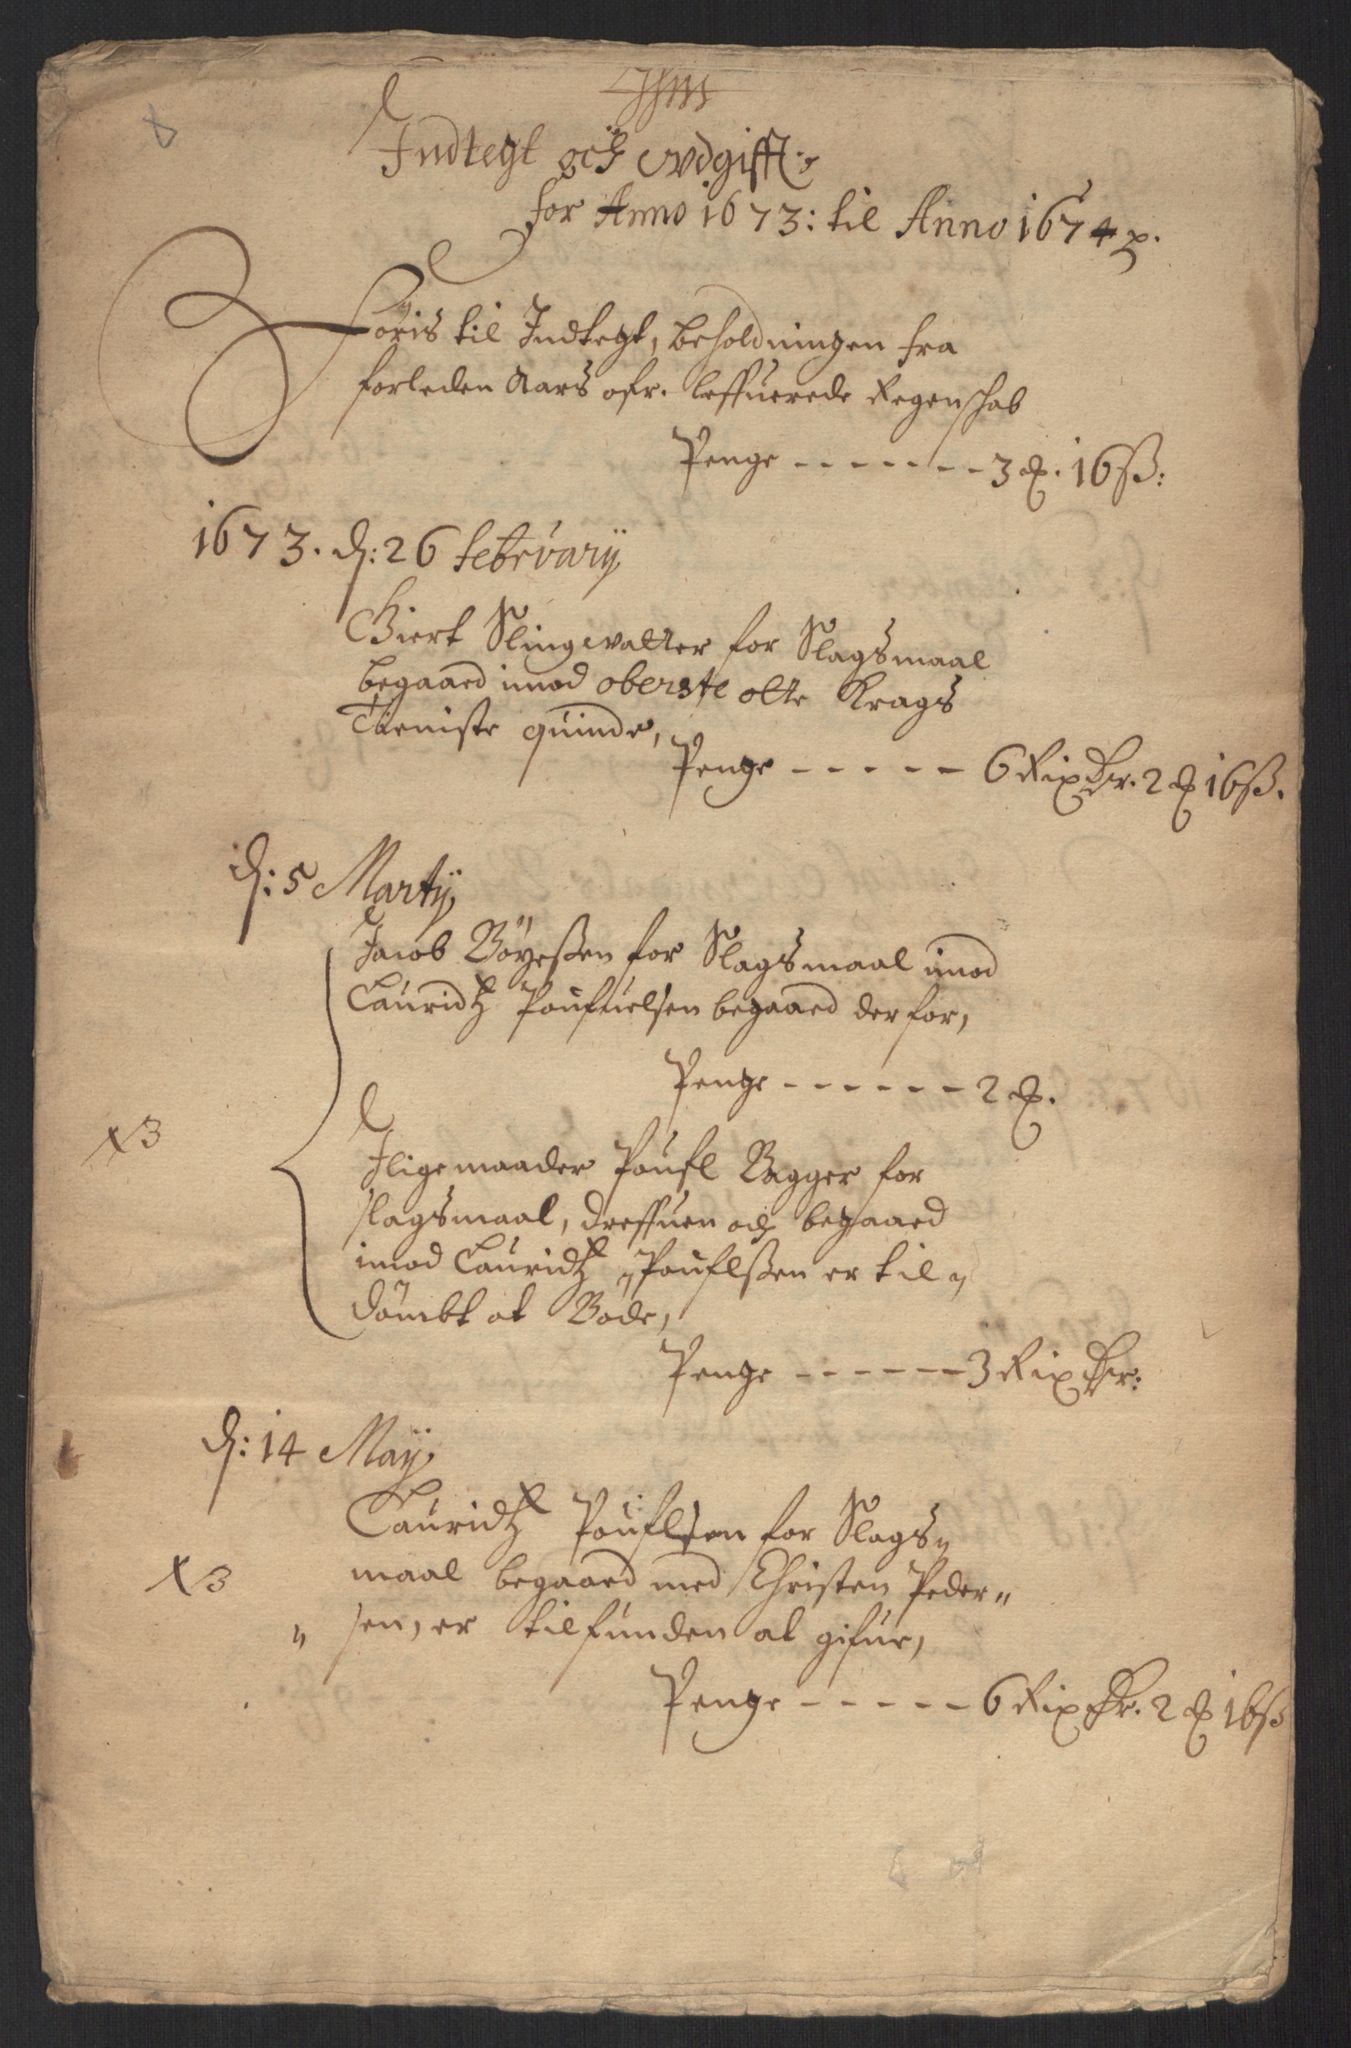 Indtegt och Vdgifft
for Anno 1673: til Anno 1674
Föris til Indtegt, beholdningen fra
forleden Aars ofr. leffuerede Regenschab
Penge - - - - - - - 3 16 ß:
1673. d: 26 februarij
Giert Slingewatter for Slagsmaal
begaaed imod oberste otte Krags
Tieniste quinde,
Penge - - - - - 6 Rix Dr. 2 16 ß.
d: 5 Martij
Jacob Böyeßen for Slagsmaal imod
Lauridtz Pouffuelsen begaaed derfor,
Penge - - - - - - 2
X3
Ilige maader Poufl Bagger for
slagsmaal, dreffuen och begaaed
imod Lauridtz Pouflßen er til„
dömbt at Böde,
Penge - - - - - - 3 Rix Dr:
d: 14 Maij
Lauridtz Pouflsen for Slags„
X3 maal begaaed med Christen Peder„
„ sen, er tilfunden at gifue,
Penge - - - - - 6 Rix Dr. 2 16 ß